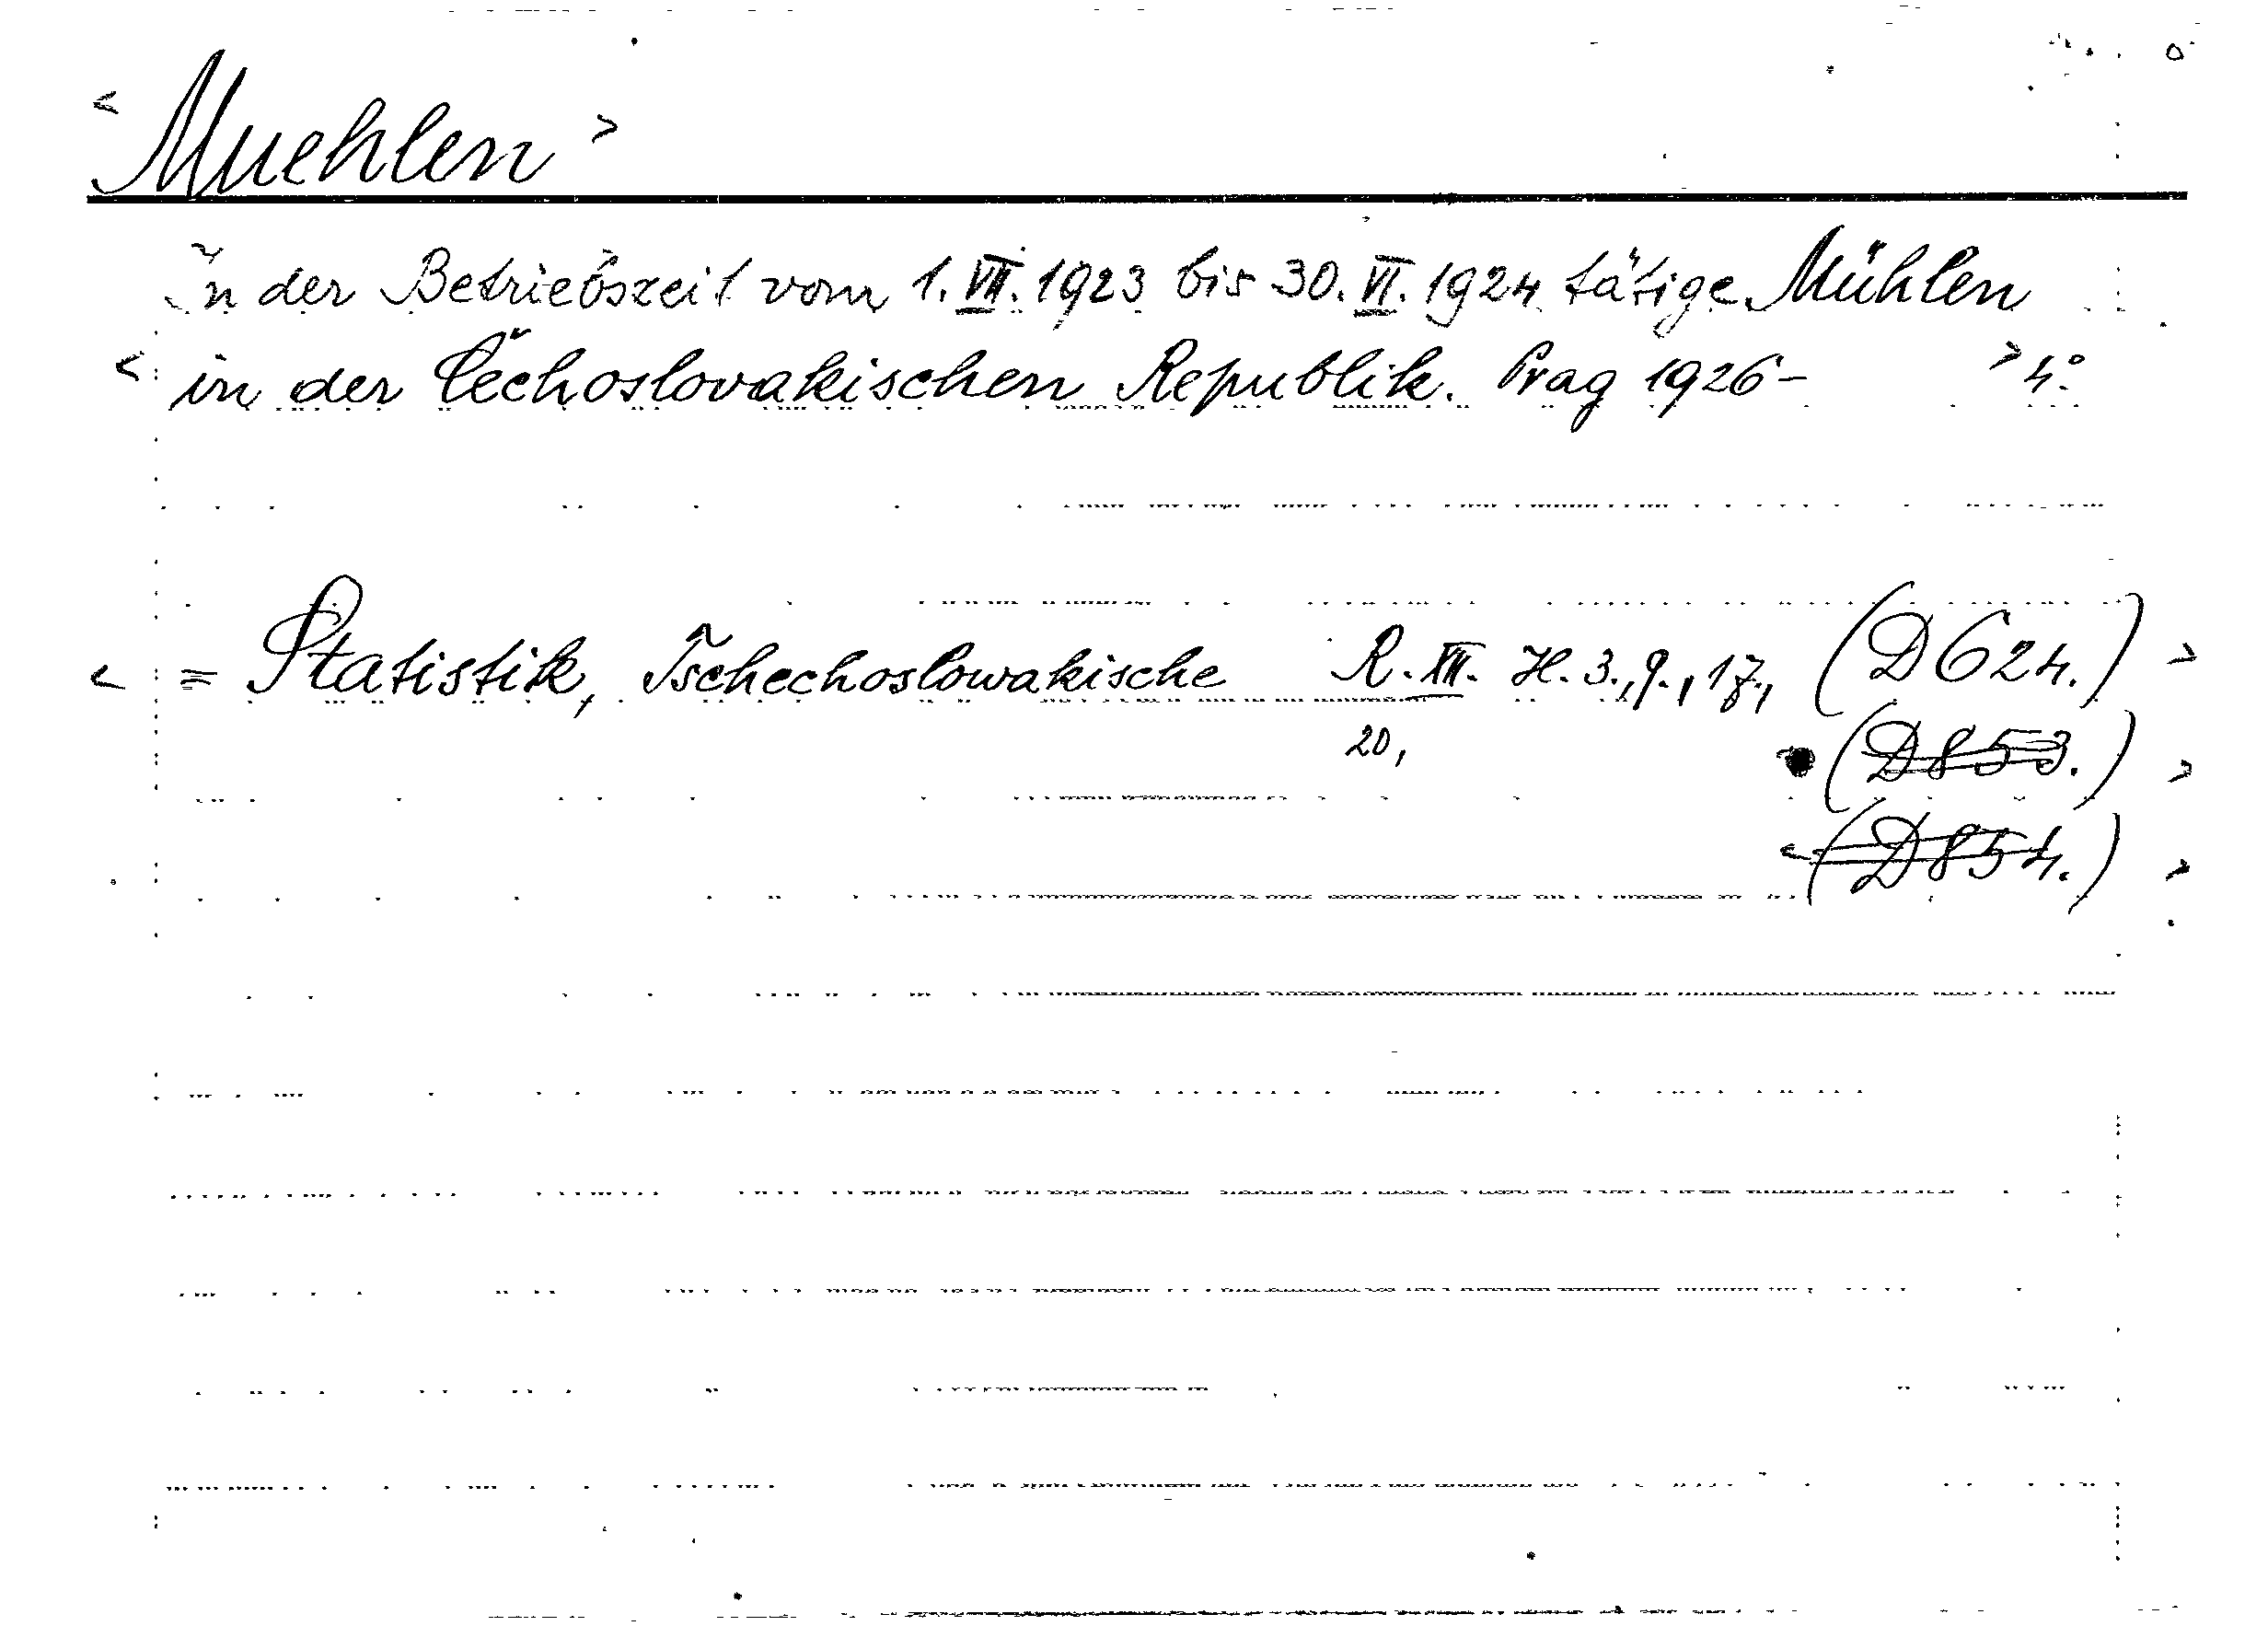 < Muehlen >
In der Betriebszeit vom 1. VII. 1923 bis 30. VI. 1924 tätige Mühlen
< in der Čechoslovakischen Republik. Prag 1926- > 4°.
< = Statistik, Tschechoslowakische R. XII. H. 3., 9., 17., (D624.) >
20, (D853.) >
< (D854.) >